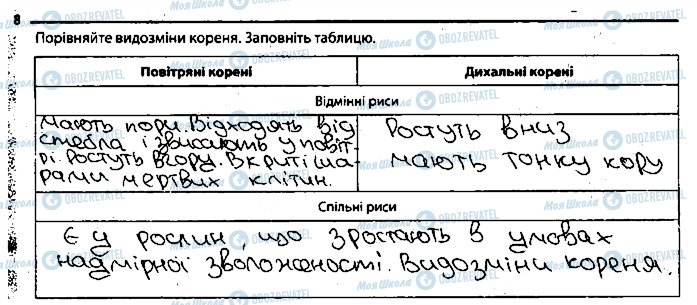 8
Порівняйте видозміни кореня. Заповніть таблицю.
Повітряні корені Дихальні корені
Відмінні риси
Мають пори. Відходять від
стебла і звисають у повіт-
рі. Ростуть вгору. Вкриті ша-
рами мертвих клітин.
Ростуть вниз
мають тонку кору
Спільні риси
Є у рослин, що зростають в умовах
надмірної зволоженості. Видозміни кореня.
Моя Школа OBOZREVATEL